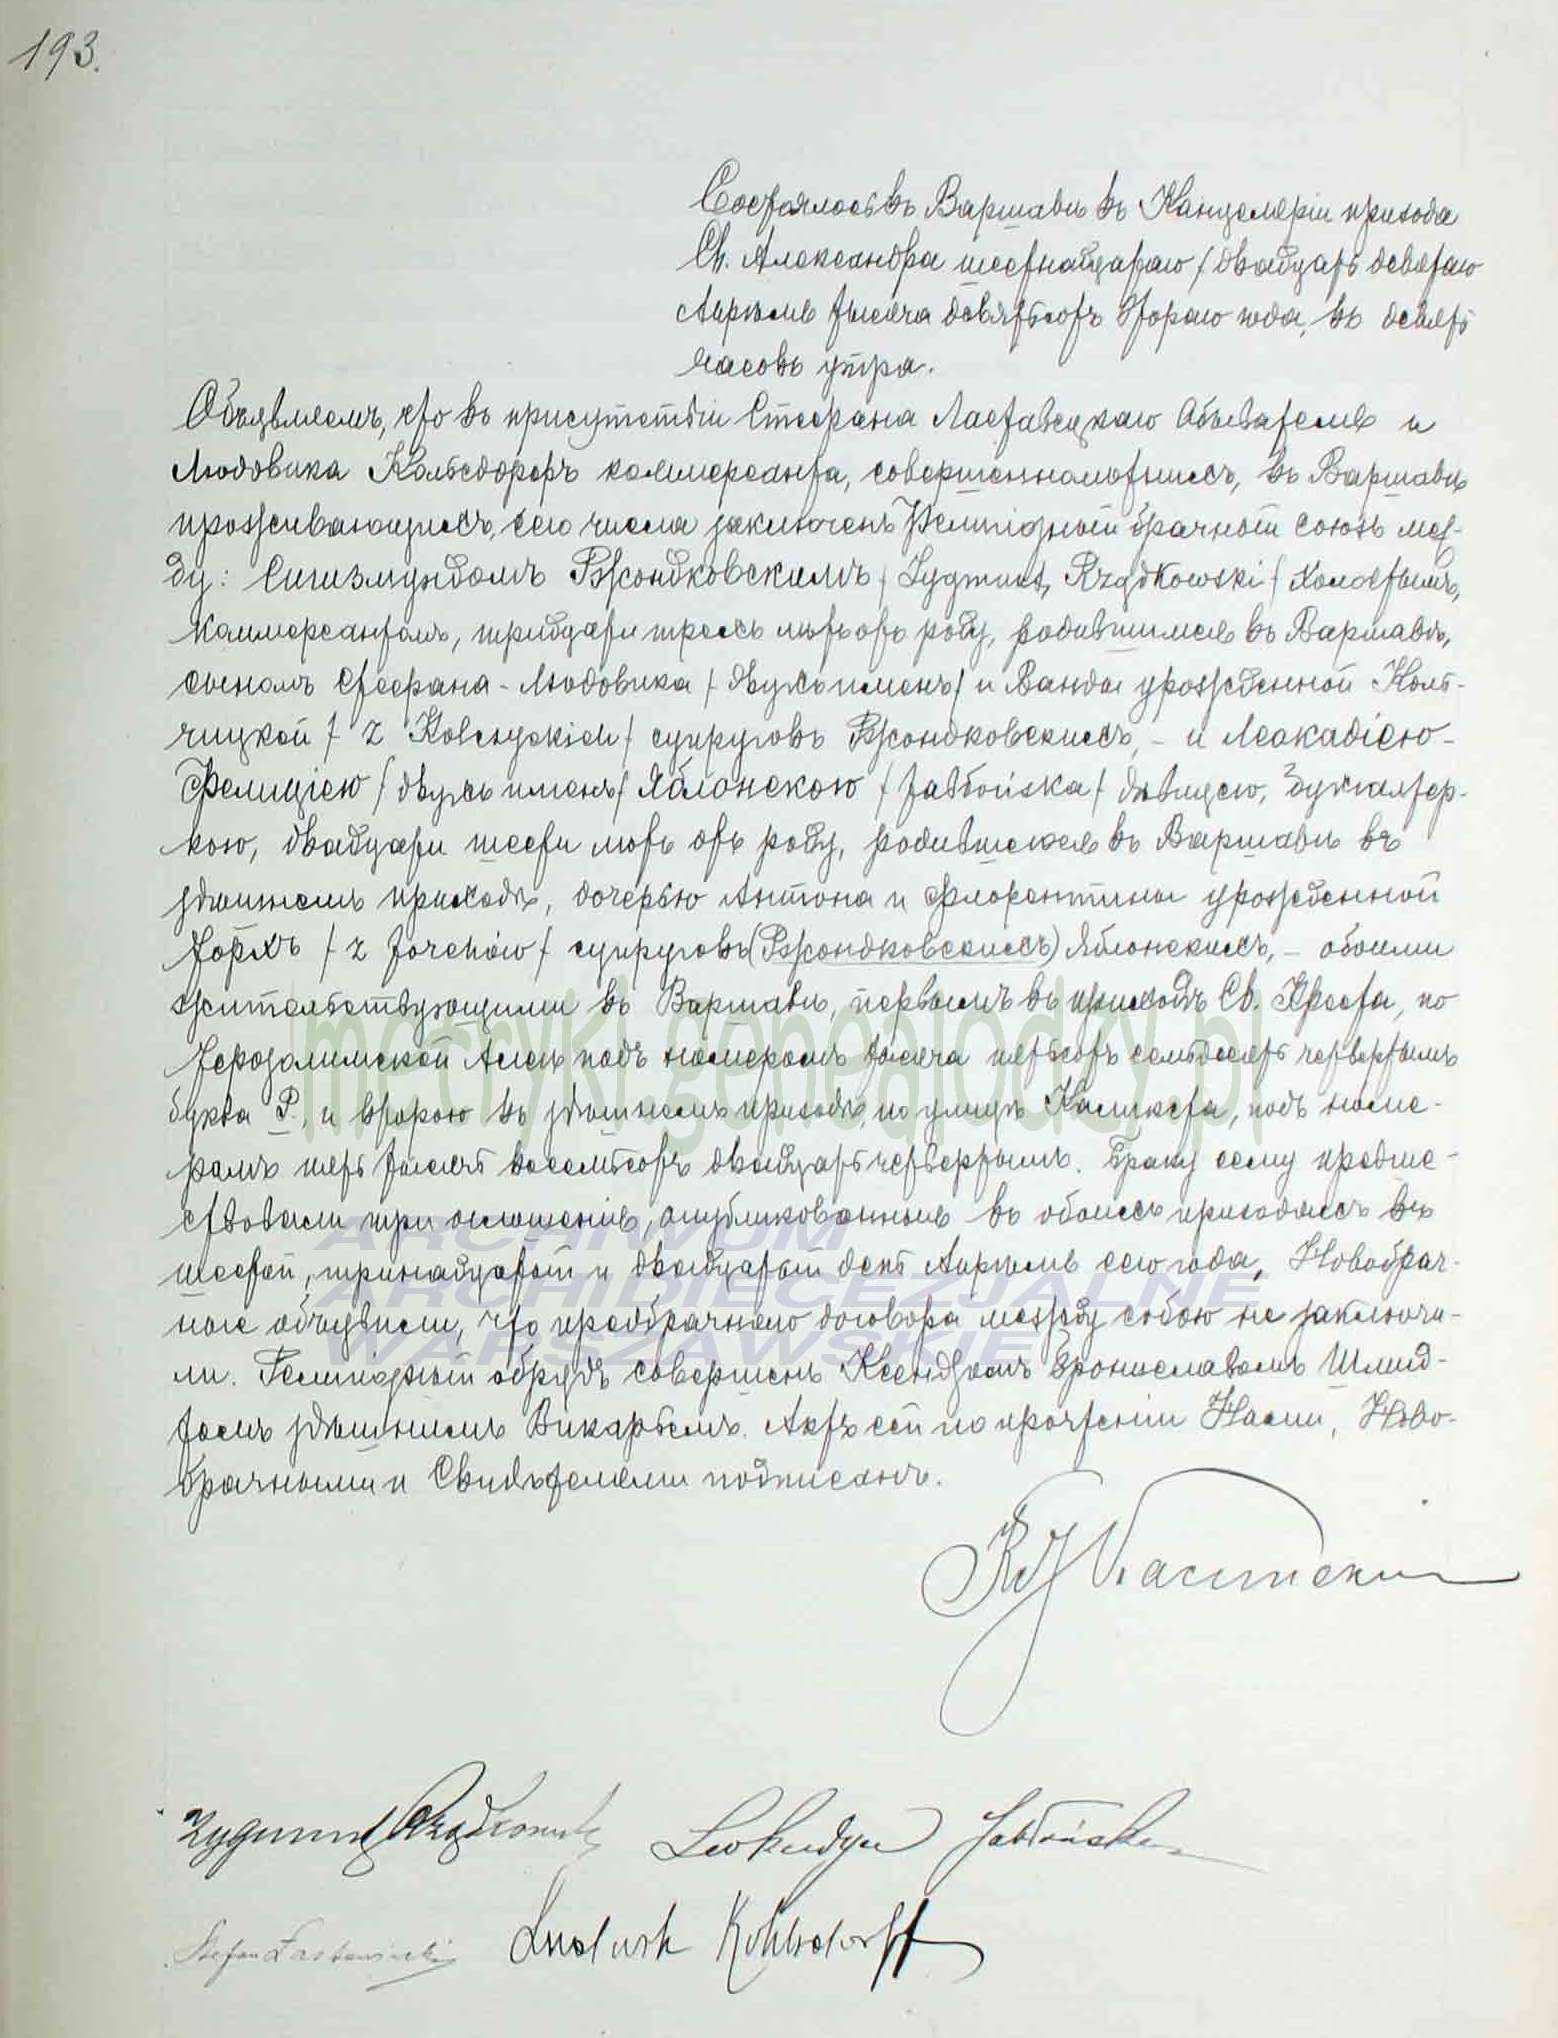 193.
Состоялось въ Варшавѣ въ Канцеляріи прихода
Св. Александра шестнадцатаго / двадцать девятаго
Апрѣля тысяча девятьсотъ втораго года, въ девять
часовъ утра.
Объявляемъ, что въ присутствіи Стефана Ластавецкаго Обывателя и
Людовика Кольсдорфъ коммерсанта, совершеннолѣтнихъ, въ Варшавѣ
проживающихъ, сего числа заключенъ Религіозный брачный союзъ меж-
ду: Сигизмундомъ Ржондковскимъ / Zygmunt Rządkowski / Холостымъ,
Коммерсантомъ, тридцати трехъ лѣтъ отъ роду, родившимся въ Варшавѣ,
сыномъ Стефана-Людовика / двухъ именъ / и Ванды урожденной Коль-
чицкой / z Kolczyckich / супруговъ Ржондковскихъ, - и Леокадіею-
Фелиціею / двухъ именъ / Яблонскою / Jabłońska / дѣвицею, Бухгалтер-
кою, двадцати шести лѣтъ отъ роду, родившеюся въ Варшавѣ въ
здѣшнемъ приходѣ, дочерью Антона и Флорентины урожденной
Іорхъ / z Jorchów / супруговъ (Ржондковскихъ) Яблонскихъ, - обоими
жительствующими въ Варшавѣ, первымъ въ приходѣ Св. Креста, по
Іерозолимской Алеи подъ номеромъ тысяча пятьсотъ семьдесятъ четвертымъ
буква Р., и второю въ здѣшнемъ приходѣ, по улицѣ Каликста, подъ номе-
ромъ пять тысячъ восемьсотъ двадцать четвертымъ. Браку сему предше-
ствовали три оглашенія, опубликованныя въ обоихъ приходахъ въ
шестой, тринадцатый и двадцатый день Апрѣля сего года, Новобрач-
ные объявили, что предбрачнаго договора между собою не заключи-
ли. Религіозный обрядъ совершенъ Ксендзомъ Брониславомъ Шмид-
томъ здѣшнимъ Викаріемъ. Актъ сей по прочтеніи Нами, Ново-
брачными и Свидѣтелями подписанъ.
Zygmunt Rządkowski Leokadya Jabłońska
Stefan Łastawiecki Ludwik Kohlsdorff
metryki.genealodzy.pl
ARCHIWUM
ARCHIDIECEZJALNE
WARSZAWSKIE